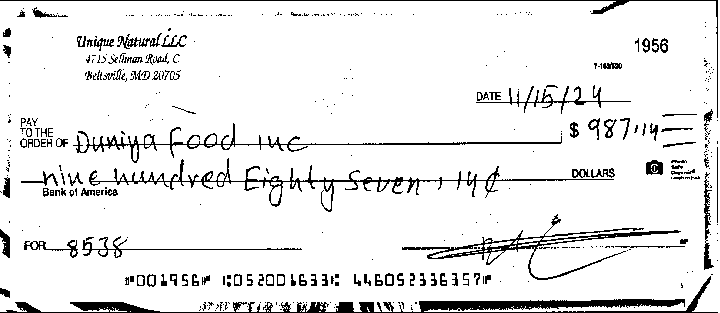 Unique Natural LLC
1956
4715 Sellman Road, C
Beltsville, MD 20705
DATE 11/15/24
PAY
TO THE
ORDER OF Duniya Food inc $ 987.14
nine hundred Eighty Seven , 14¢ DOLLARS
Bank of America
FOR 8538
⑈001956⑈ ⑆052001633⑆ 446052336357⑈